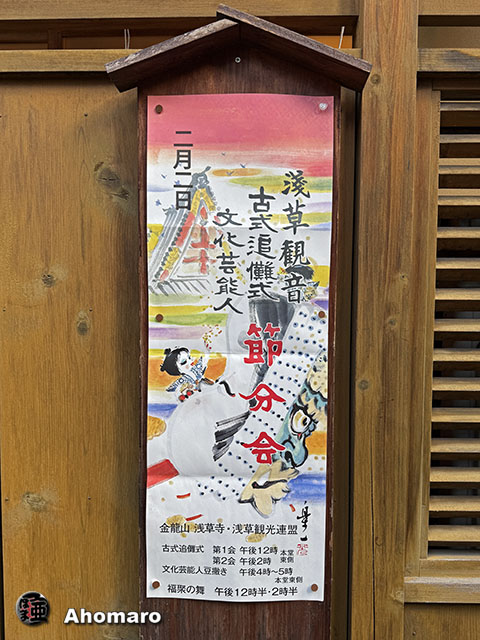 淺草観音
古式追儺式
文化芸能人
節分会
二月二日
金龍山 浅草寺・浅草観光連盟
古式追儺式 第1会 午後12時 本堂
第2会 午後2時 東側
文化芸能人豆撒き 午後4時〜5時
本堂東側
福聚の舞 午後12時半・2時半
Ahomaro